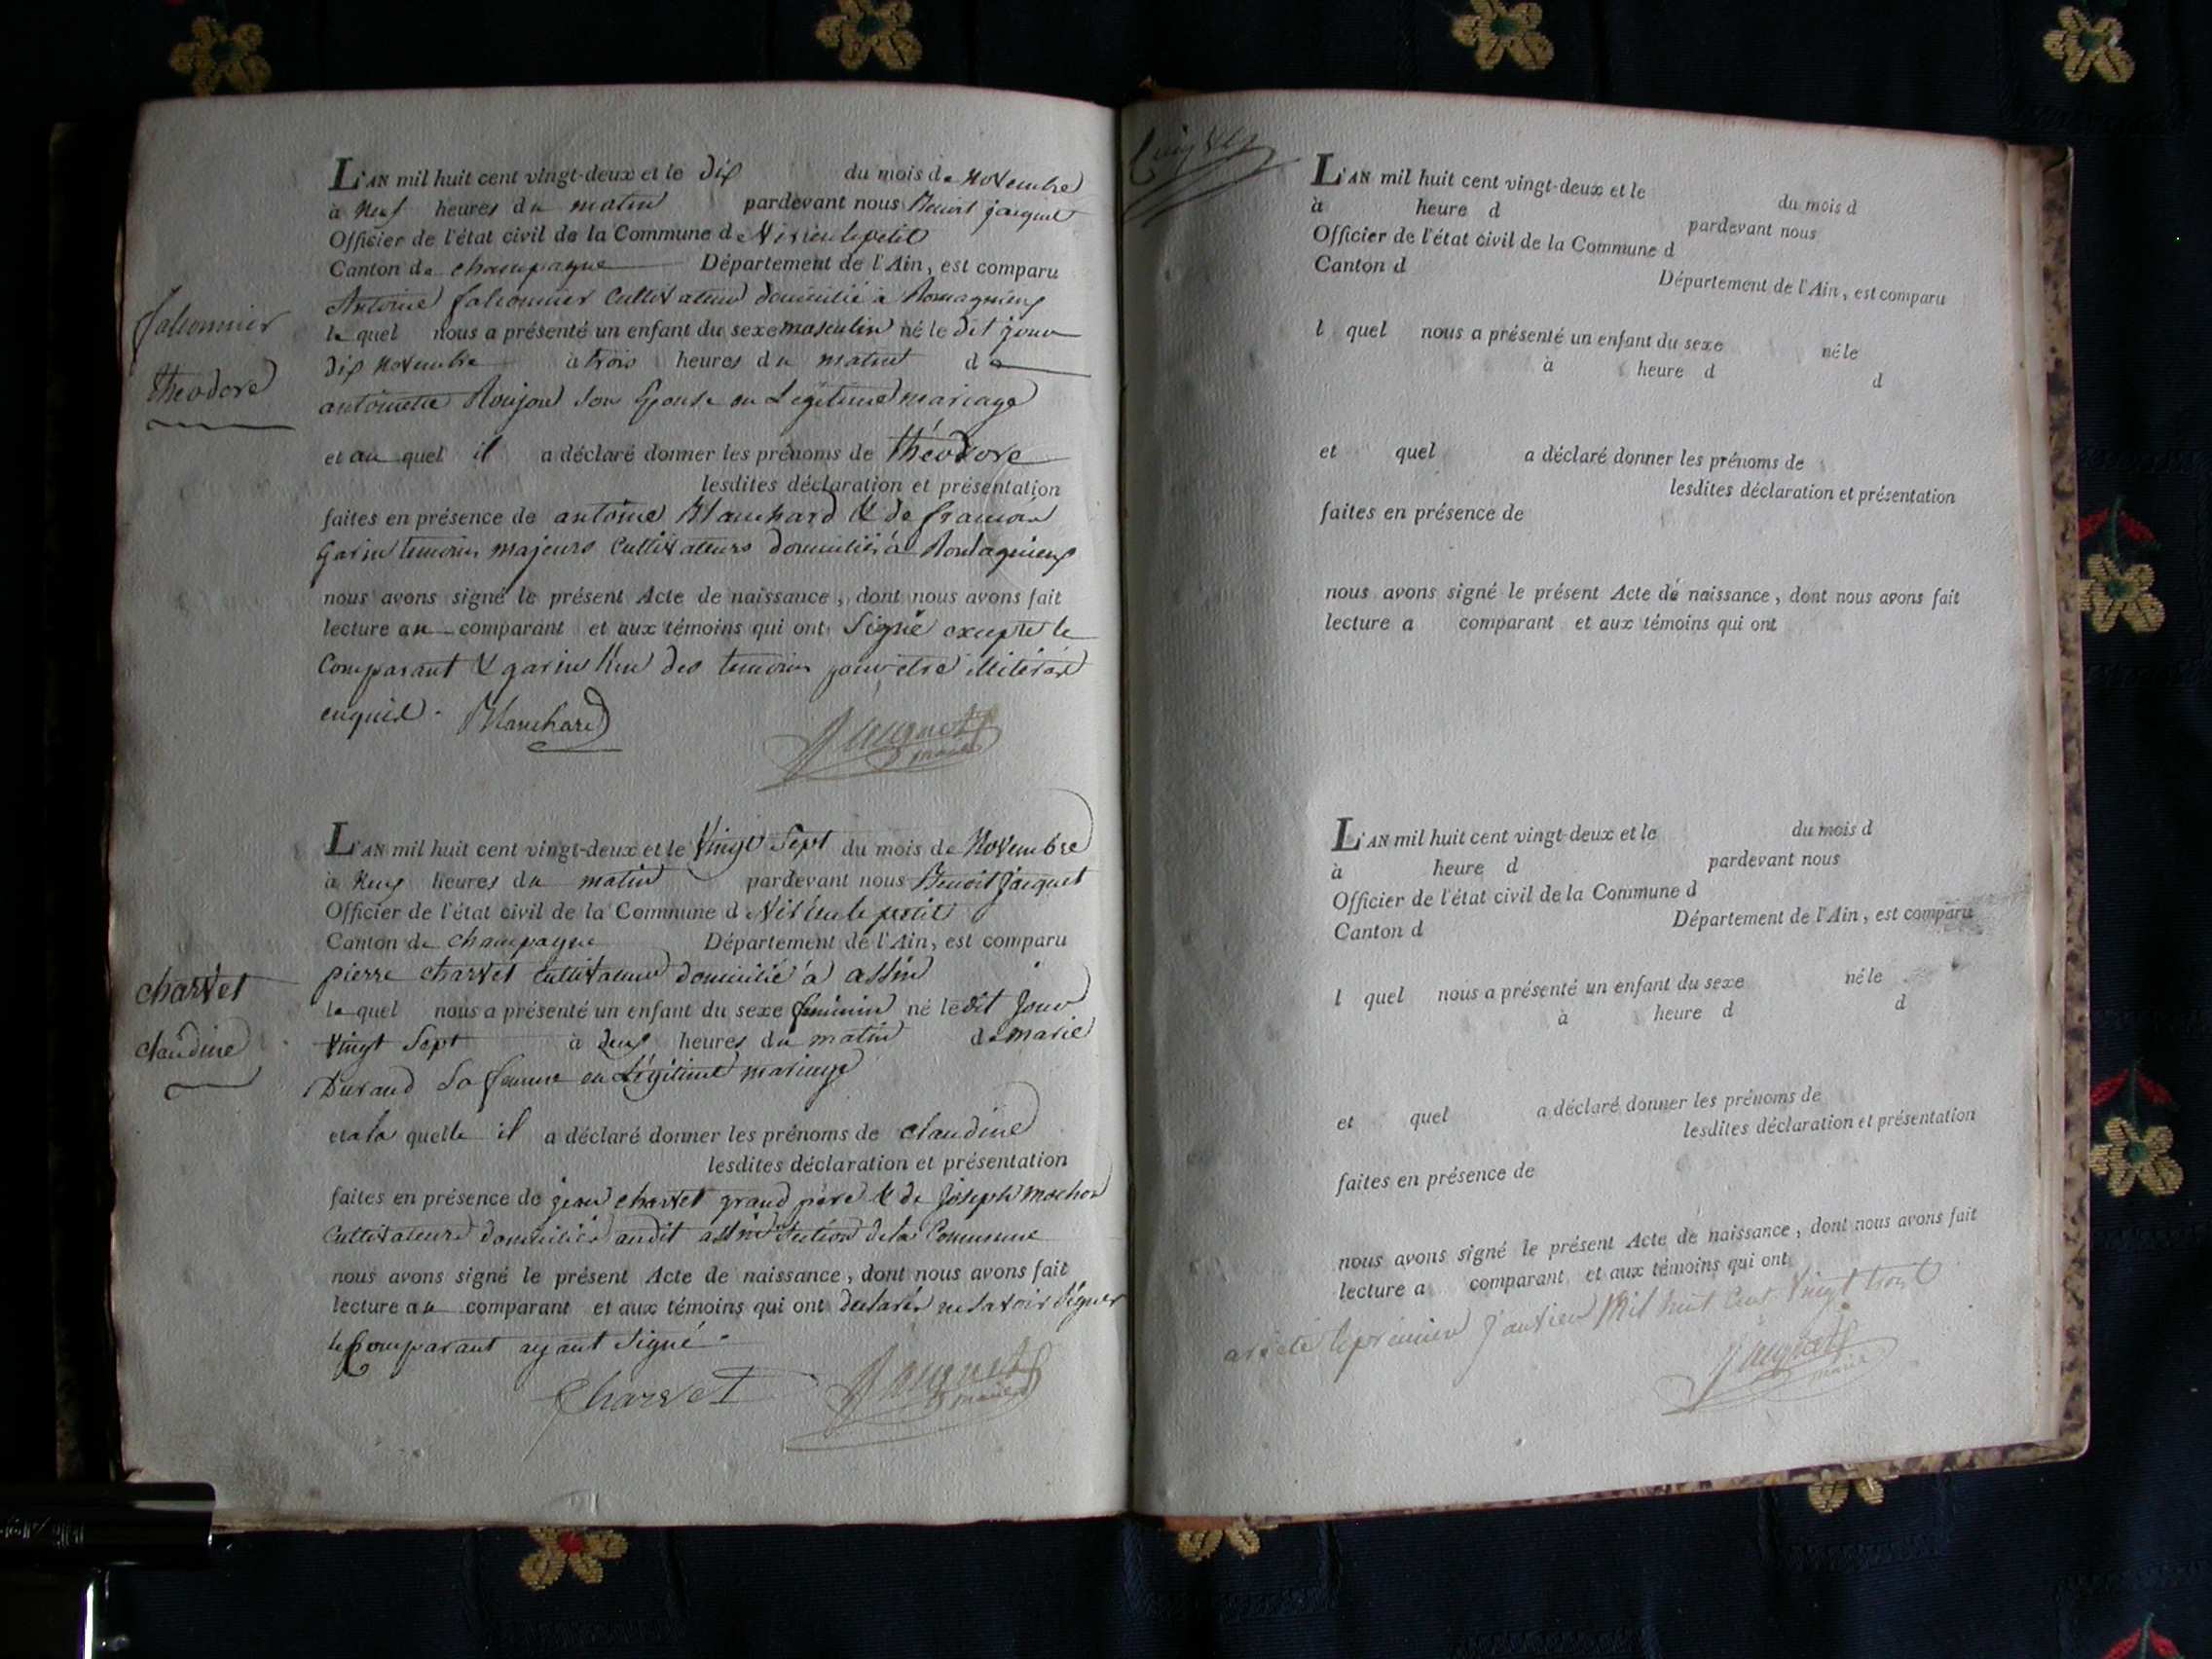 L'AN mil huit cent vingt-deux et le dix du mois de Novembre
à Neuf heures du matin pardevant nous Benoit Jacquet
Officier de l'état civil de la Commune de Virieu le petit
Canton de champagne Département de l'Ain, est comparu
Antoine falconnier Cultivateur domicilié à Romagnieux
falconnier
le quel nous a présenté un enfant du sexe masculin né le dit jour
dix Novembre à trois heures du matin de
theodore
antoinette Roujon son Epouse en Légitime mariage
et au quel il a déclaré donner les prénoms de théodore
lesdites déclaration et présentation
faites en présence de antoine Blanchard & de francois
Garin temoins majeurs Cultivateurs domiciliés à Romagnieux
nous avons signé le présent Acte de naissance, dont nous avons fait
lecture au comparant et aux témoins qui ont Signé excepté le
Comparant & garin l'un des temoins pour etre illiterés
enquis. Blanchard
Jacquet
maire
L'AN mil huit cent vingt-deux et le Vingt Sept du mois de Novembre
à Neuf heures du matin pardevant nous Benoit Jacquet
Officier de l'état civil de la Commune de Virieu le petit
Canton de Champagne Département de l'Ain, est comparu
pierre charvet Cultivateur domicilié à assin
charvet
le quel nous a présenté un enfant du sexe feminin né le dit Jour
claudine
Vingt Sept à deux heures du matin de marie
Durand Sa femme en Légitime mariage
et a la quelle il a déclaré donner les prénoms de claudine
lesdites déclaration et présentation
faites en présence de jean charvet grand père & de Joseph mochon
Cultivateurs domiciliés audit assin Section de la Commune
nous avons signé le présent Acte de naissance, dont nous avons fait
lecture au comparant et aux témoins qui ont declarés ne Savoir Signer
le Comparant ayant Signé.
Charvet Jacquet
maire
L'AN mil huit cent vingt-deux et le du mois d
à heure d pardevant nous
Officier de l'état civil de la Commune d
Canton d Département de l'Ain, est comparu
l quel nous a présenté un enfant du sexe né le
à heure d d
et quel a déclaré donner les prénoms de
lesdites déclaration et présentation
faites en présence de
nous avons signé le présent Acte de naissance, dont nous avons fait
lecture a comparant et aux témoins qui ont
L'AN mil huit cent vingt-deux et le du mois d
à heure d pardevant nous
Officier de l'état civil de la Commune d
Canton d Département de l'Ain, est comparu
l quel nous a présenté un enfant du sexe né le
à heure d d
et quel a déclaré donner les prénoms de
lesdites déclaration et présentation
faites en présence de
nous avons signé le présent Acte de naissance, dont nous avons fait
lecture a comparant et aux témoins qui ont
arêté le premier Janvier Mil huit Cent Vingt trois
Jacquet
maire